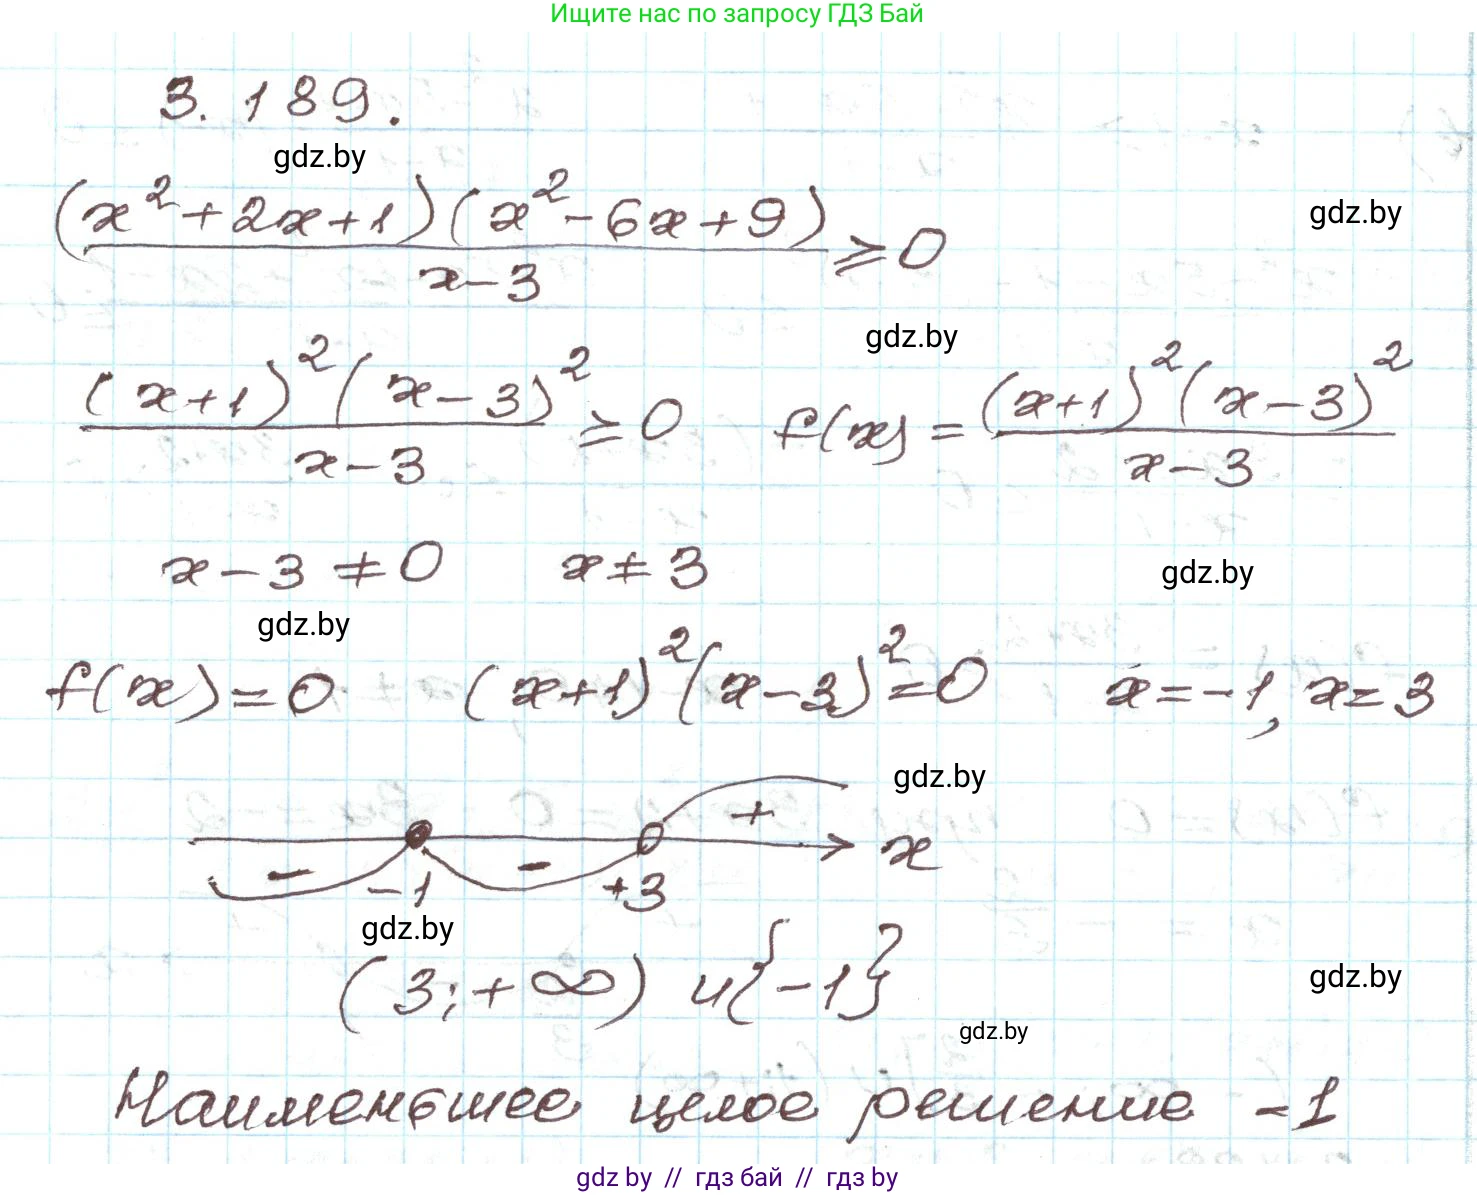 Ищите нас по запросу ГДЗ Бай
3.189.
gdz.by
(x²+2x+1)(x²-6x+9)
gdz.by
x-3
≥0
gdz.by
(x+1)²(x-3)²
x-3
≥0
f(x) =
(x+1)²(x-3)²
x-3
x-3≠0 x≠3
gdz.by
gdz.by
f(x)=0 (x+1)²(x-3)²=0 x=-1, x=3
gdz.by
- - + x
-1 +3
gdz.by
(3;+∞) и{-1}
gdz.by
gdz.by
Наименьшее целое решение -1
gdz.by // гдз бай // гдз by